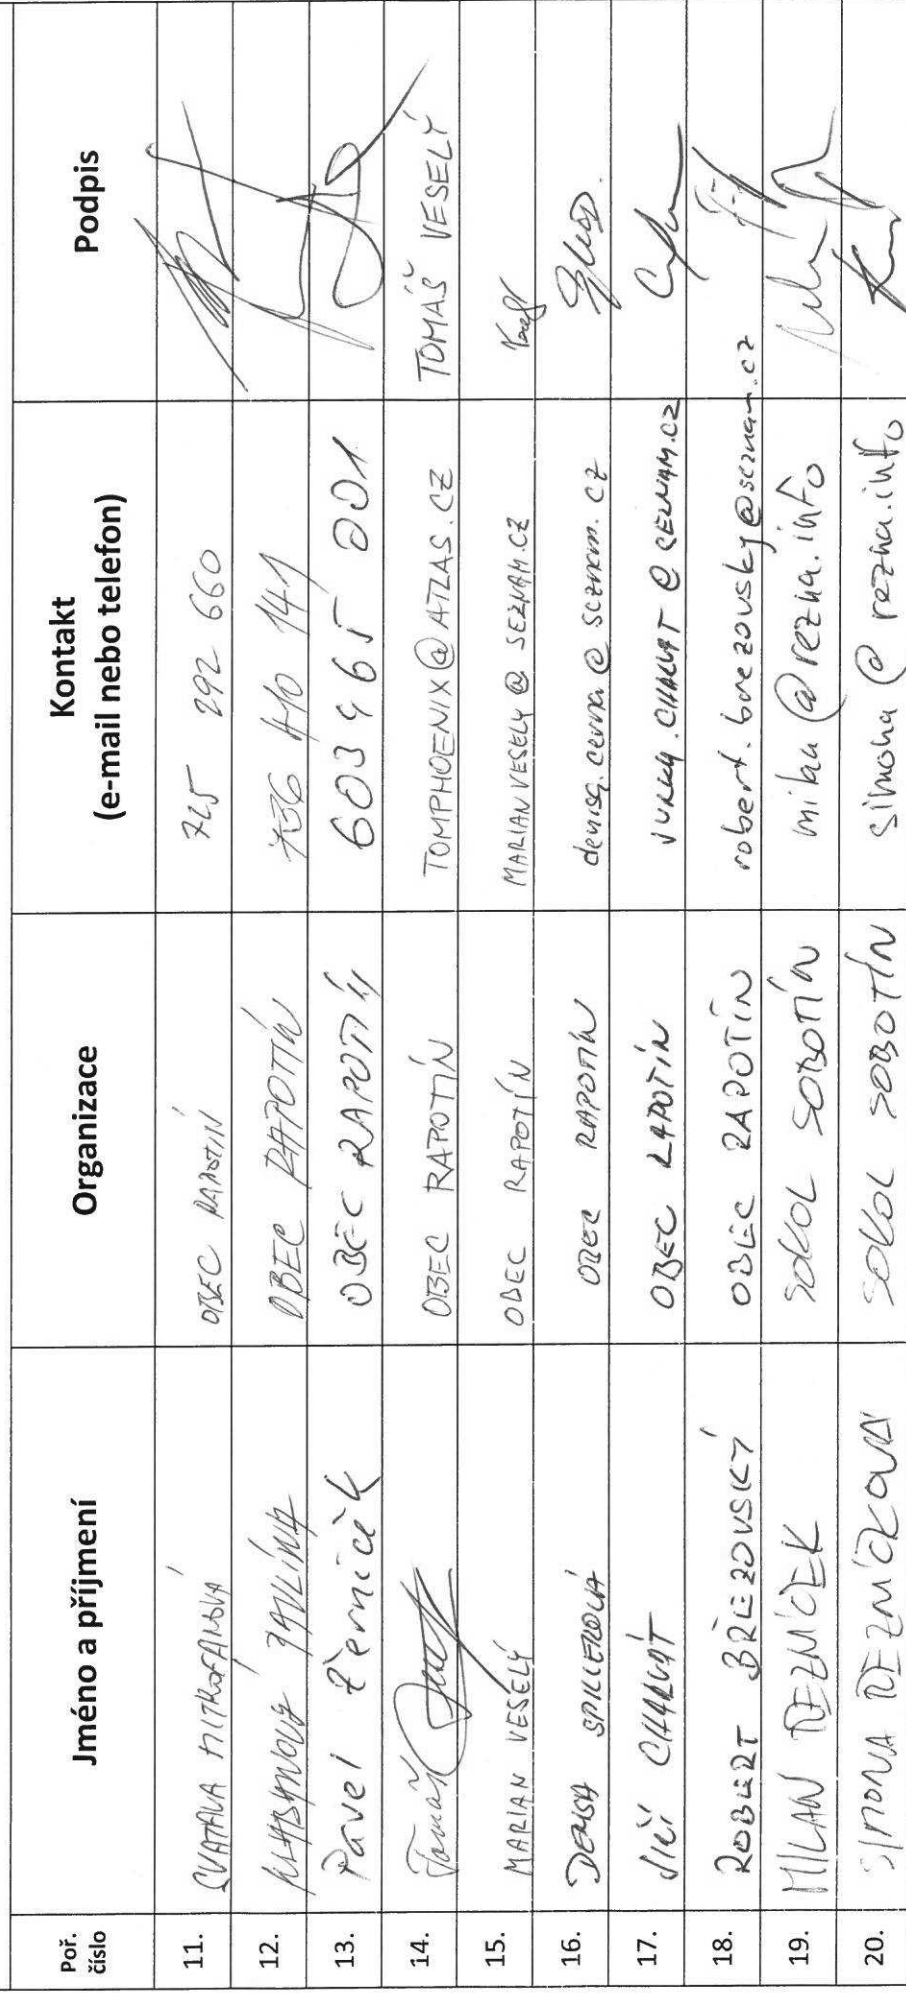 Poř. číslo Jméno a příjmení Organizace Kontakt (e-mail nebo telefon) Podpis
11. OBEC RAPOTÍN 725 292 660
12. OBEC RAPOTÍN 736 141
13. Pavel Žerníček OBEC RAPOTÍN 603 465 001
14. Tomáš OBEC RAPOTÍN TOMPHOENIX@ATLAS.CZ TOMÁŠ VESELÝ
15. MARIAN VESELÝ OBEC RAPOTÍN MARIANVESELY@SEZNAM.CZ
16. OBEC RAPOTÍN denisa.cerna@seznam.cz
17. JIŘÍ CHARVÁT OBEC RAPOTÍN
18. ROBERT BŘEZOVSKÝ OBEC RAPOTÍN robert.brezovsky@seznam.cz
19. MILAN ŘEZNÍČEK SOKOL SOBOTÍN milan@rezna.info
20. SIMONA ŘEZNÍČKOVÁ SOKOL SOBOTÍN simona@rezna.info